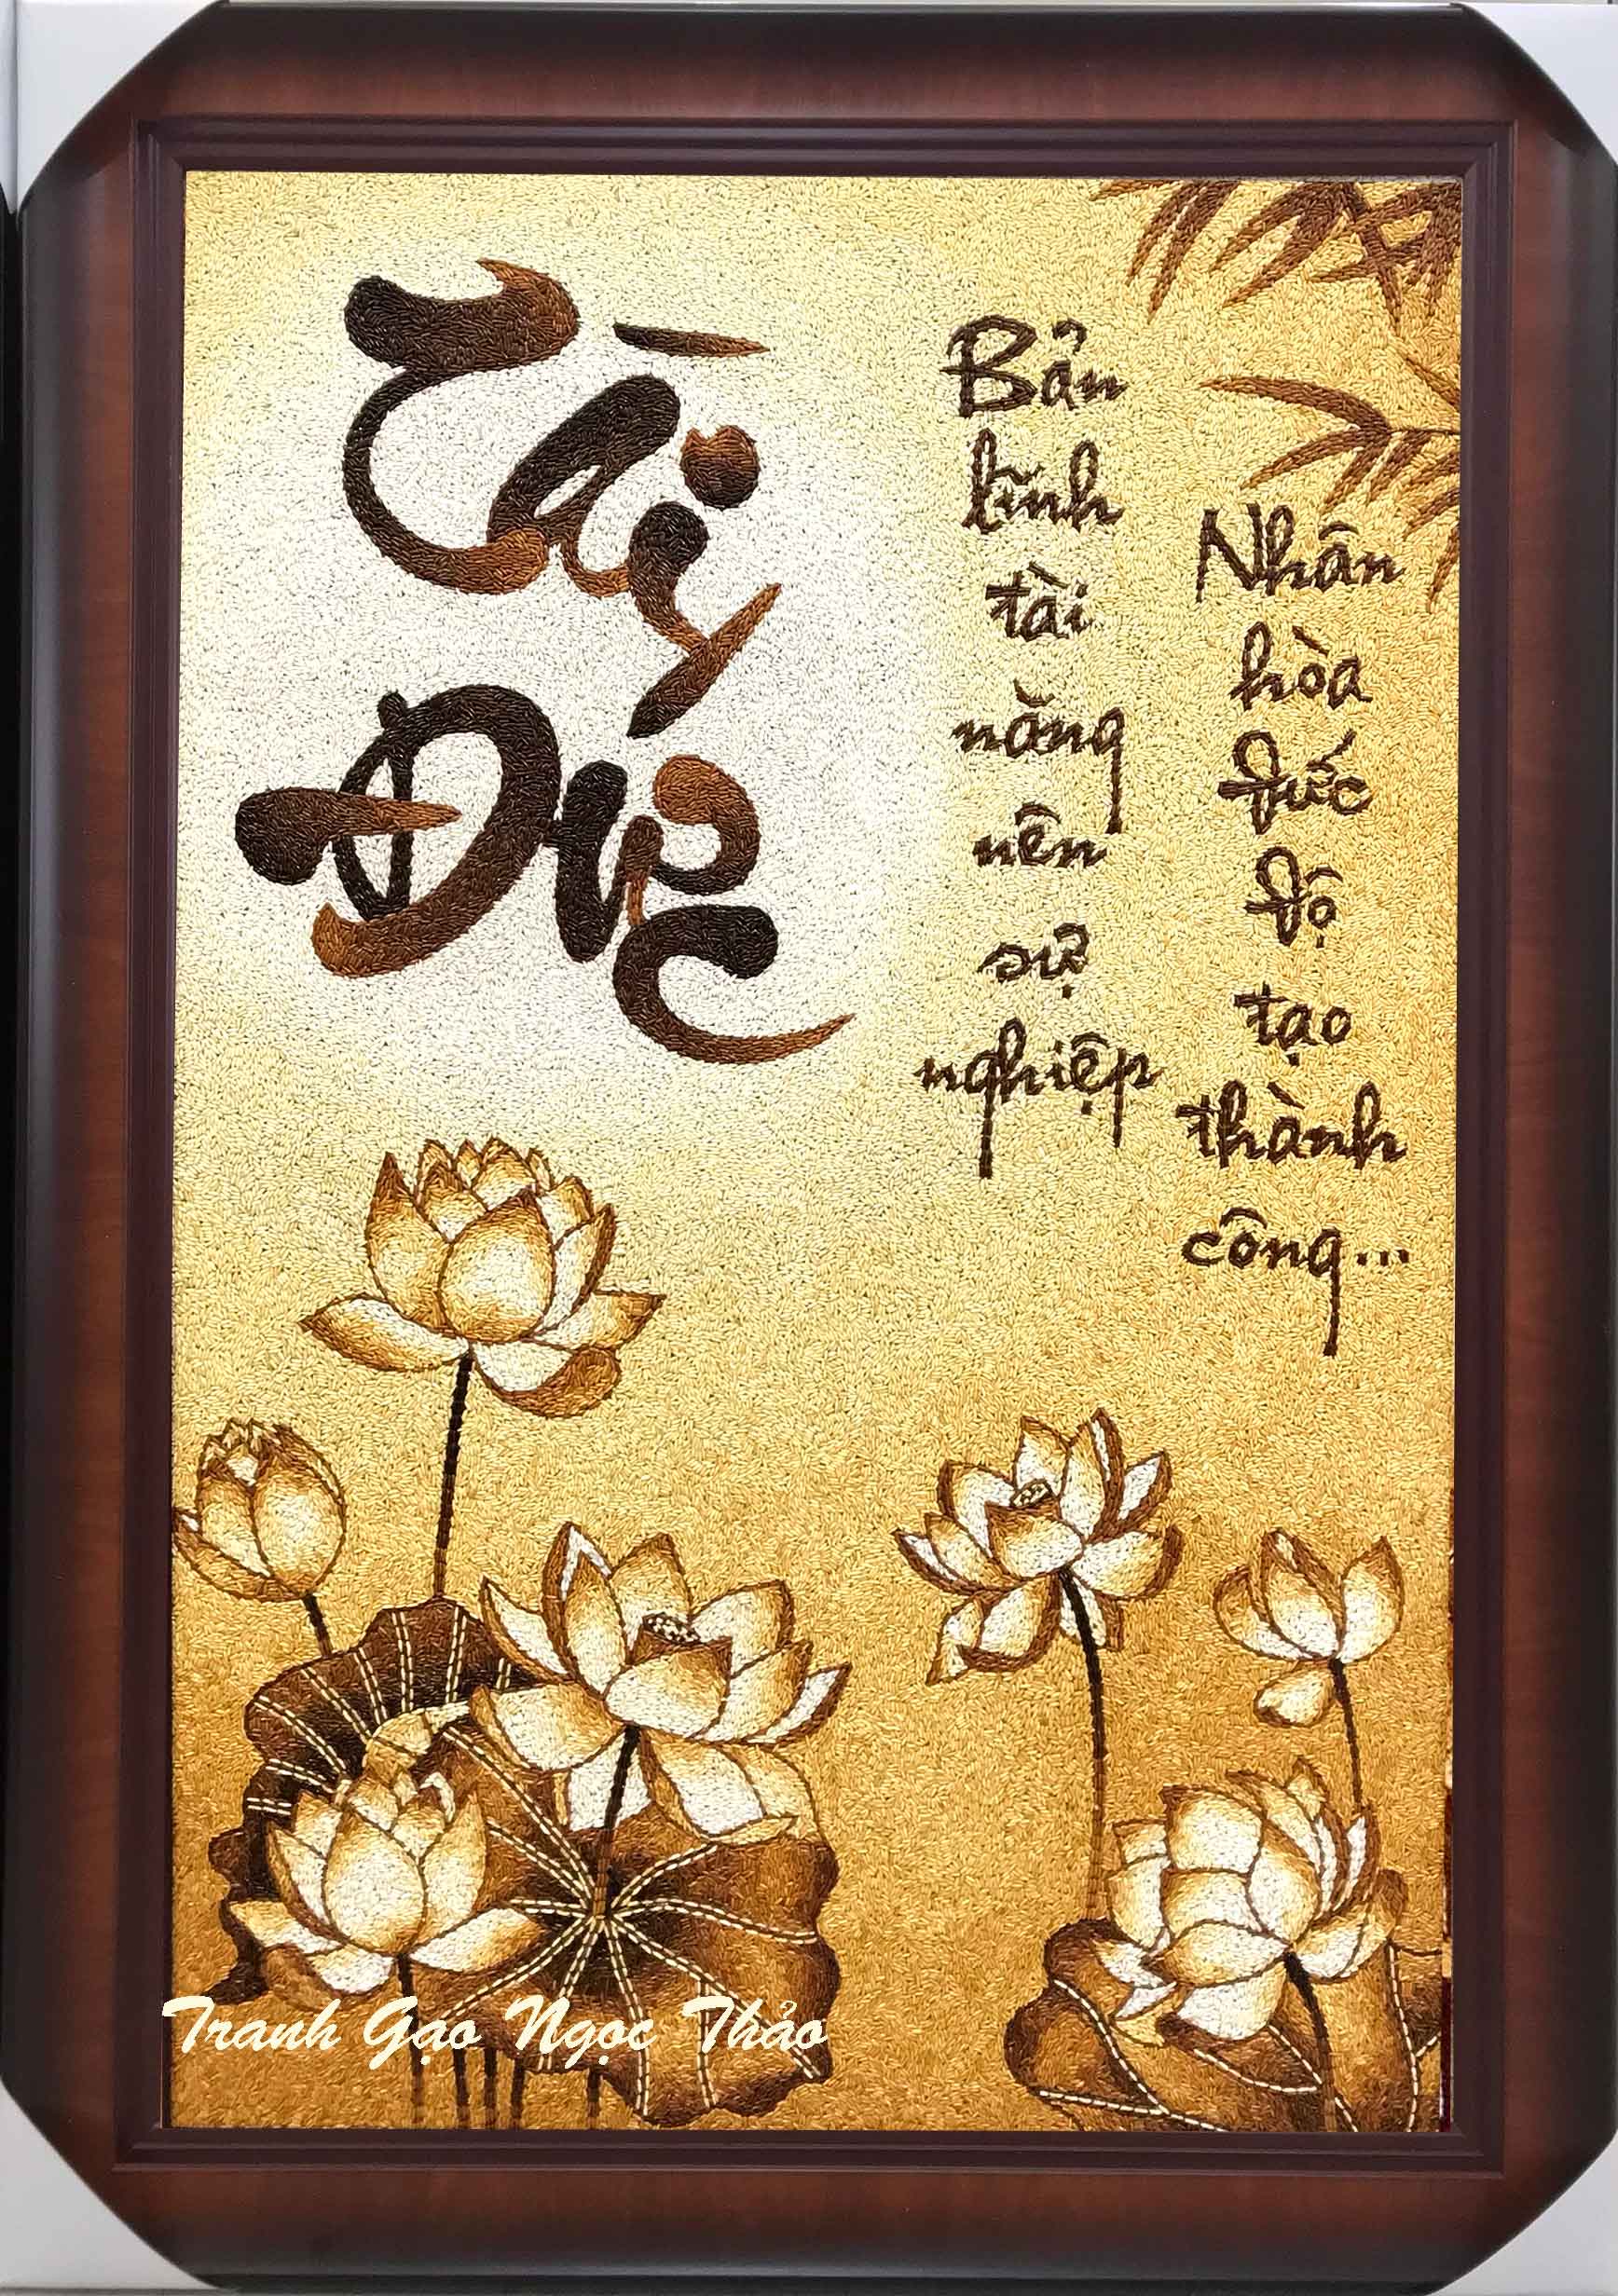 Tài
Đức
Bản
lĩnh
tài
năng
nên
sự
nghiệp
Nhân
hòa
đức
độ
tạo
thành
công...
Tranh Gạo Ngọc Thảo